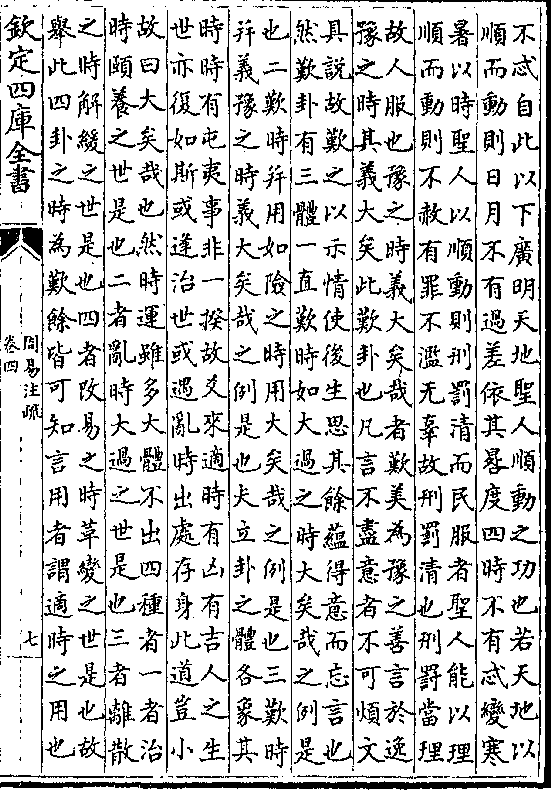 不忒自此以下廣明天地聖人順動之功也若天地以
順而動則日月不有過差依其晷度四時不有忒變寒
暑以時聖人以順動則刑罰清而民服者聖人能以理
順而動則不赦有罪不濫无辜故刑罰清也刑罰當理
故人服也豫之時義大矣哉者歎美為豫之善言於逸
豫之時其義大矣此歎卦也凡言不盡意者不可煩文
具說故歎之以示情使後生思其餘蘊得意而忘言也
然歎卦有三體一直歎時如大過之時大矣哉之例是
也二歎時并用如險之時用大矣哉之例是也三歎時
并義豫之時義大矣哉之例是也夫立卦之體各象其
時時有屯夷事非一揆故爻來適時有凶有吉人之生
世亦復如斯或逢治世或遇亂時出處存身此道豈小
故曰大矣哉也然時運雖多大體不出四種者一者治
時頤養之世是也二者亂時大過之世是也三者離散
之時解緩之世是也四者改易之時革變之世是也故
舉此四卦之時為歎餘皆可知言用者謂適時之用也
欽定四庫全書
周易注疏
卷四
七